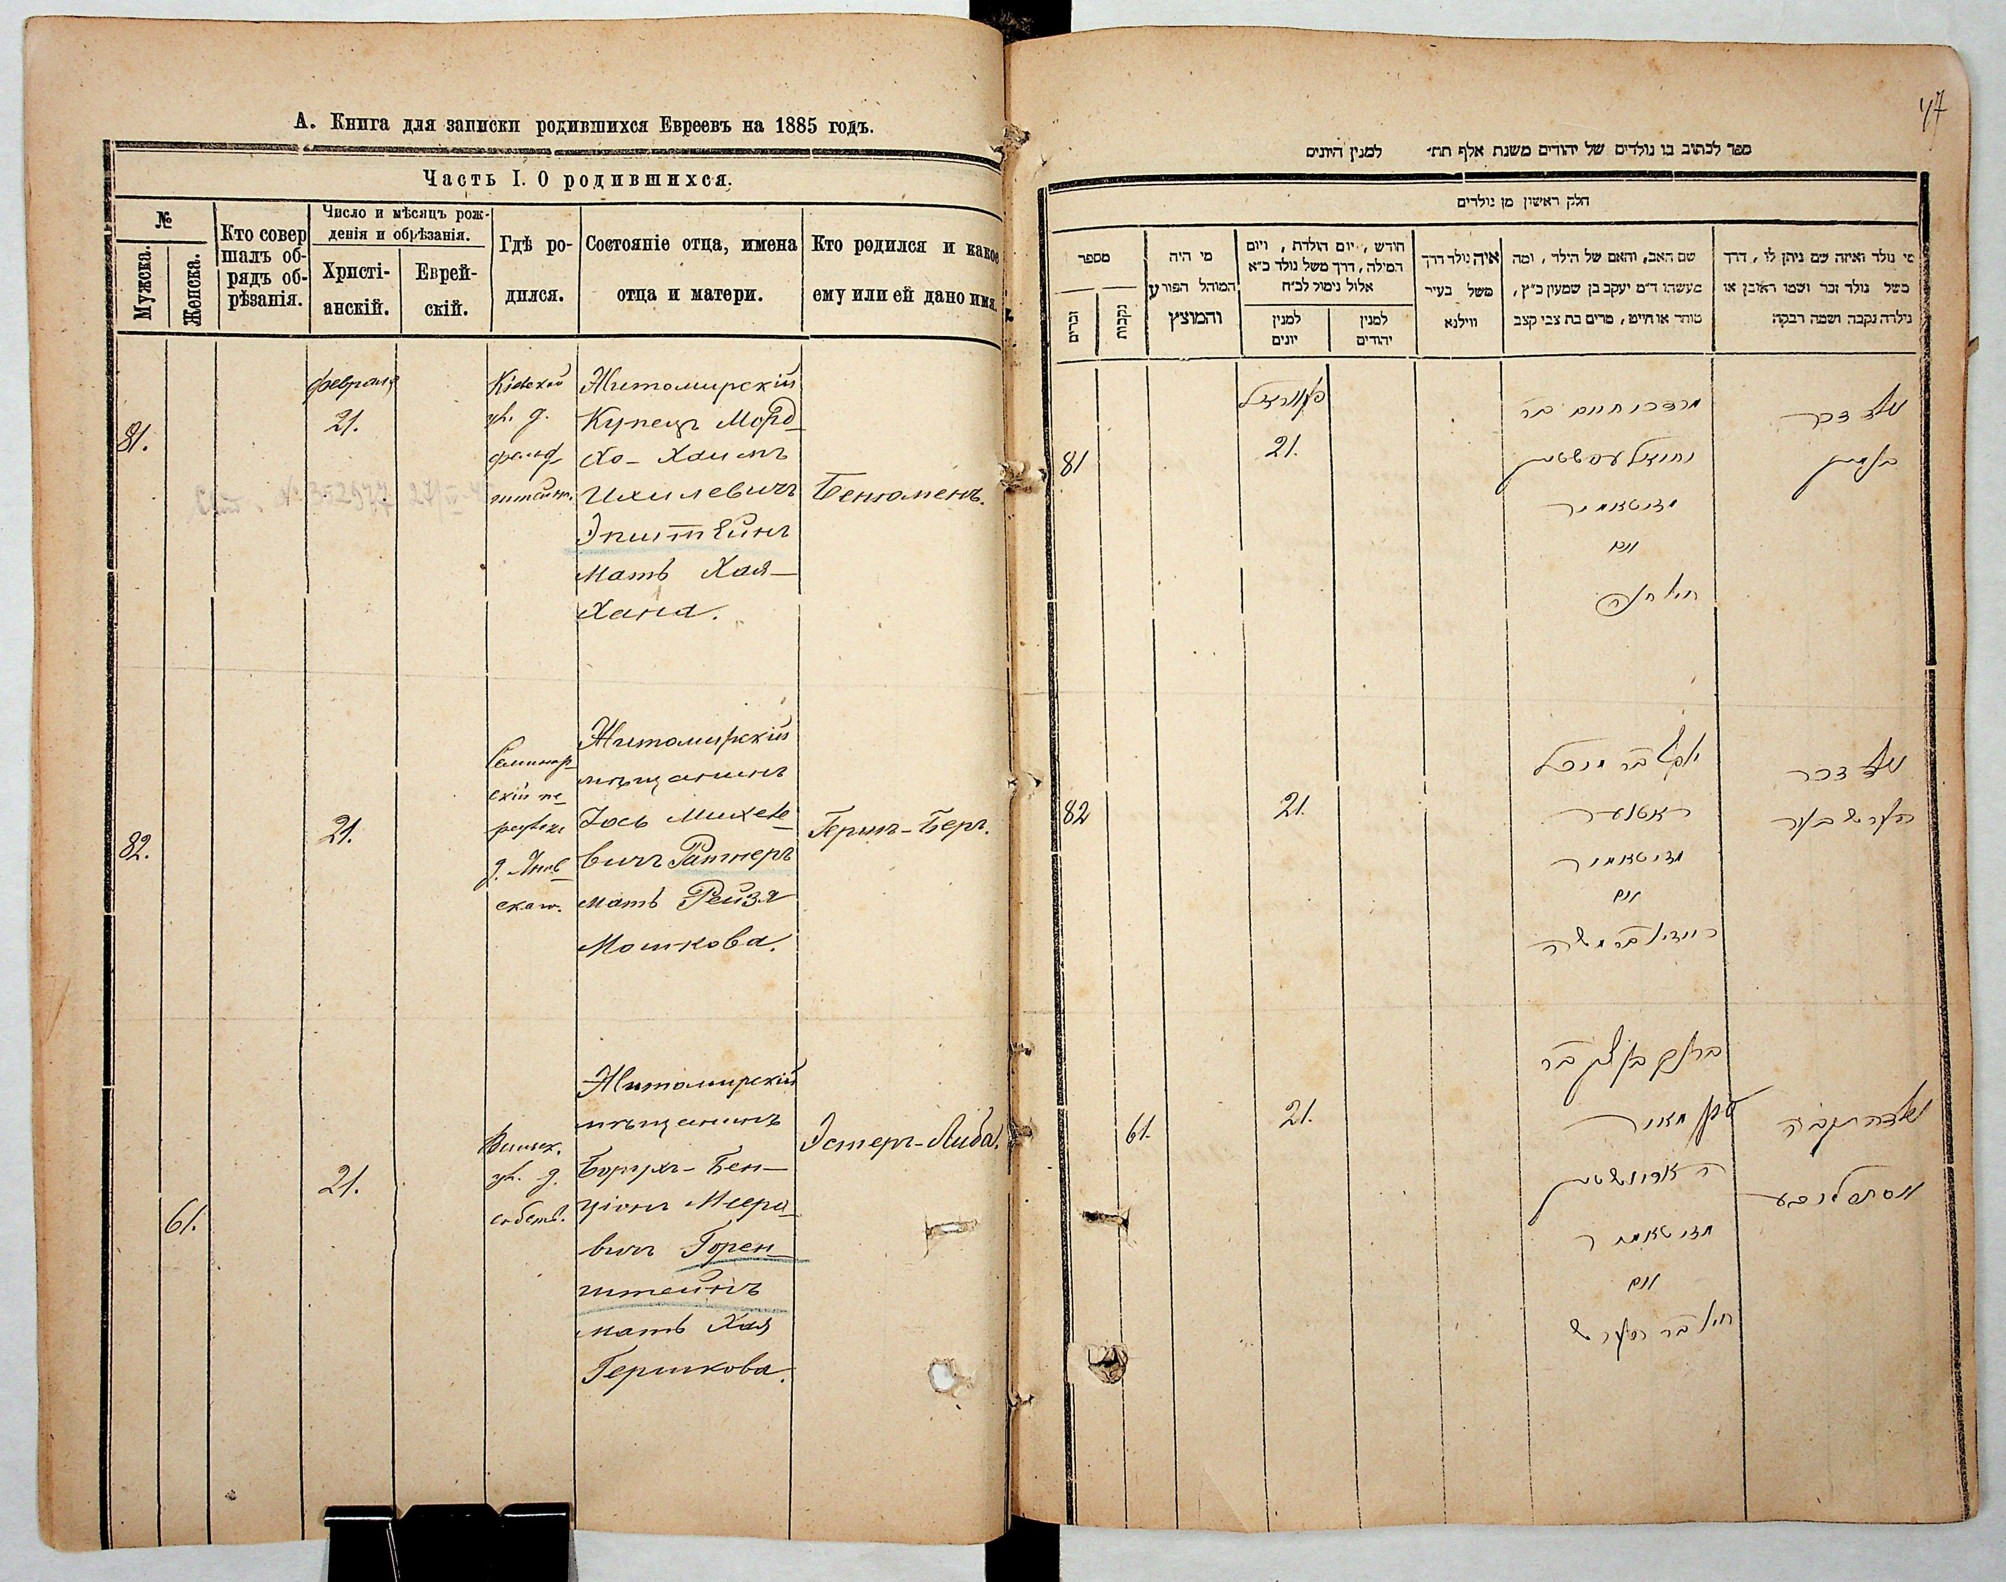 А. Книга для записки родившихся Евреевъ на 1885 годъ.
Часть I. О родившихся.
№
Мужска.
Женска.
Кто совер
шалъ об-
рядъ об-
рѣзанія.
Число и мѣсяцъ рож-
денія и обрѣзанія.
Христі-
анскій.
Еврей-
скій.
Гдѣ ро-
дился.
Состояніе отца, имена
отца и матери.
Кто родился и какое
ему или ей дано имя.
81.
февраля
21.
Кіевской
ул. д.
штейн.
Житомирскій
Купецъ Морд
хо-Хаимъ
Ихилевичъ
Эпштейнъ
мать Хая-
Хана.
Бенюменъ.
82.
21.
Семинар
скій пе
Житомирскій
мѣщанинъ
Іось Михеле
вичъ Ратнеръ
мать Рейзя
Мошкова.
Гершъ-Беръ.
61.
21.
ул. д.
собств.
Житомирскій
мѣщанинъ
Борухъ-Бен-
ціонъ Меера
вичъ Горен
штейнъ
мать Хая
Гершкова.
Эстеръ-Либа.
47
ספר לכתוב בו נולדים של יהודים משנת אלף תת״ למנין היונים
חלק ראשון מן נולדים
מספר
זכרים
נקבות
מי היה
המוהל הפורע
והמוצץ
חודש, יום הולדת, ויום
המילה, דרך משל נולד כ״א
אלול נימול לכ״ח
למנין
יונים
למנין
יהודים
איה נולד דרך
משל בעיר
ווילנא
שם האב, והאם של הילד, ומה
מעשהו ד״מ יעקב בן שמעון כ״ץ,
סוחר או חייט, מרים בת צבי קצב
מי נולד ואיזה שם ניתן לו, דרך
משל נולד זכר ושמו ראובן או
נולדה נקבה ושמה רבקה
81
21.
מרדכי חיים בר
יחיאל עפשטיין
מזיטאמיר
ואם
חי׳ חנה
ילד זכר
בנימין
82
21.
ראטנער
מזיטאמיר
ואם
רייזא בר משה
ילד זכר
הערש בער
61.
21.
ברוך בן ציון בר
האריושטיין
מזיטאמיר
ואם
חי׳ בר הערש
ילדה נקבה
אסתר ליבע